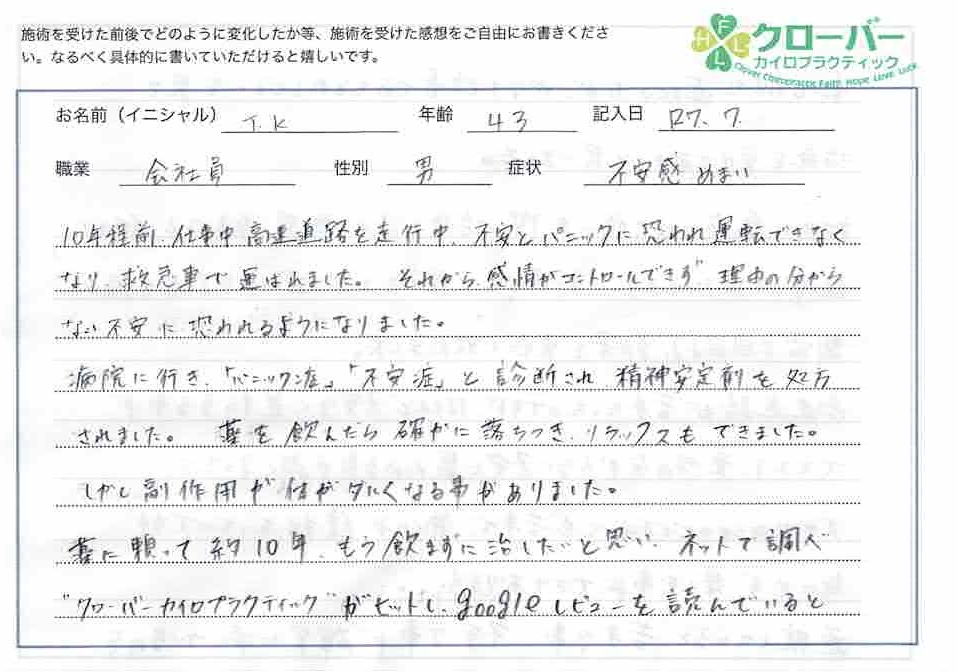 施術を受けた前後でどのように変化したか等、施術を受けた感想をご自由にお書きくださ
い。なるべく具体的に書いていただけると嬉しいです。
H F L L
クローバー
カイロプラクティック
Clover Chiropractic Faith Hope Love Luck
お名前（イニシャル） T.K 年齢 43 記入日 R7. 7.
職業 会社員 性別 男 症状 不安感 めまい
10年程前、仕事中 高速道路を走行中、不安とパニックに恐われ運転できなく
なり、救急車で運ばれました。それから、感情がコントロールできず、理由の分から
ない不安に恐われるようになりました。
病院に行き、「パニック症」「不安症」と診断され 精神安定剤を処方
されました。 薬を飲んだら確かに落ちつき、リラックスもできました。
しかし副作用が体がダルくなる事がありました。
薬に頼って約10年、もう飲まずに治したいと思い、ネットで調べ
"クローバーカイロプラクティック"がヒットし、googleレビューを読んでいると